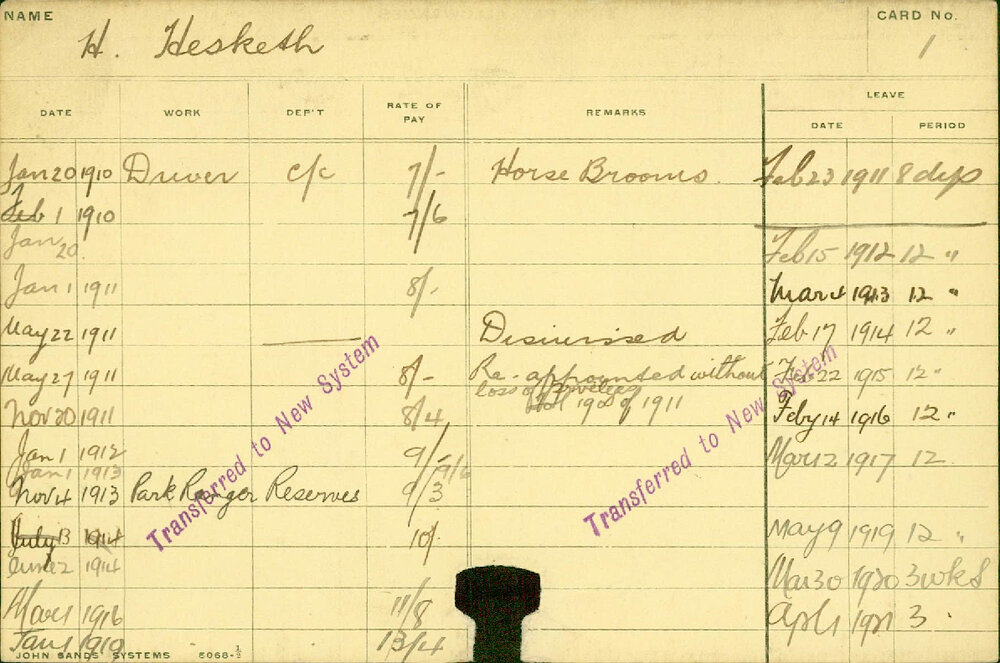 NAME
CARD No.
H. Hesketh
1
DATE WORK DEP'T RATE OF PAY REMARKS LEAVE
DATE PERIOD
Jan 20 1910 Driver C/C 7/- Horse Brooms. Feb 23 1911 8 days
Feb 1 1910 7/6
Jan 20. Feb 15 1912 12 "
Jan 1 1911 8/- Mar 4 1913 12 "
May 22 1911 Dismissed Feb 17 1914 12 "
May 27 1911 8/- Re-appointed without Feb 22 1915 12 "
loss of
Nov 20 1911 8/4 of 1911 Feby 14 1916 12 "
Jan 1 1912 9/- Mar 12 1917 12
Jan 1 1913 9/6
Nov 4 1913 Park Ranger Reserves 9/3
July 13 1914 10/- May 9 1919 12 "
June 2 1914
Mar 30 1920 3 wks
Mar 1 1916 11/8 Apl 1 1921 3
Jan 1 1919 13/4
Transferred to New System
Transferred to New System
JOHN SANDS' SYSTEMS 5068-½